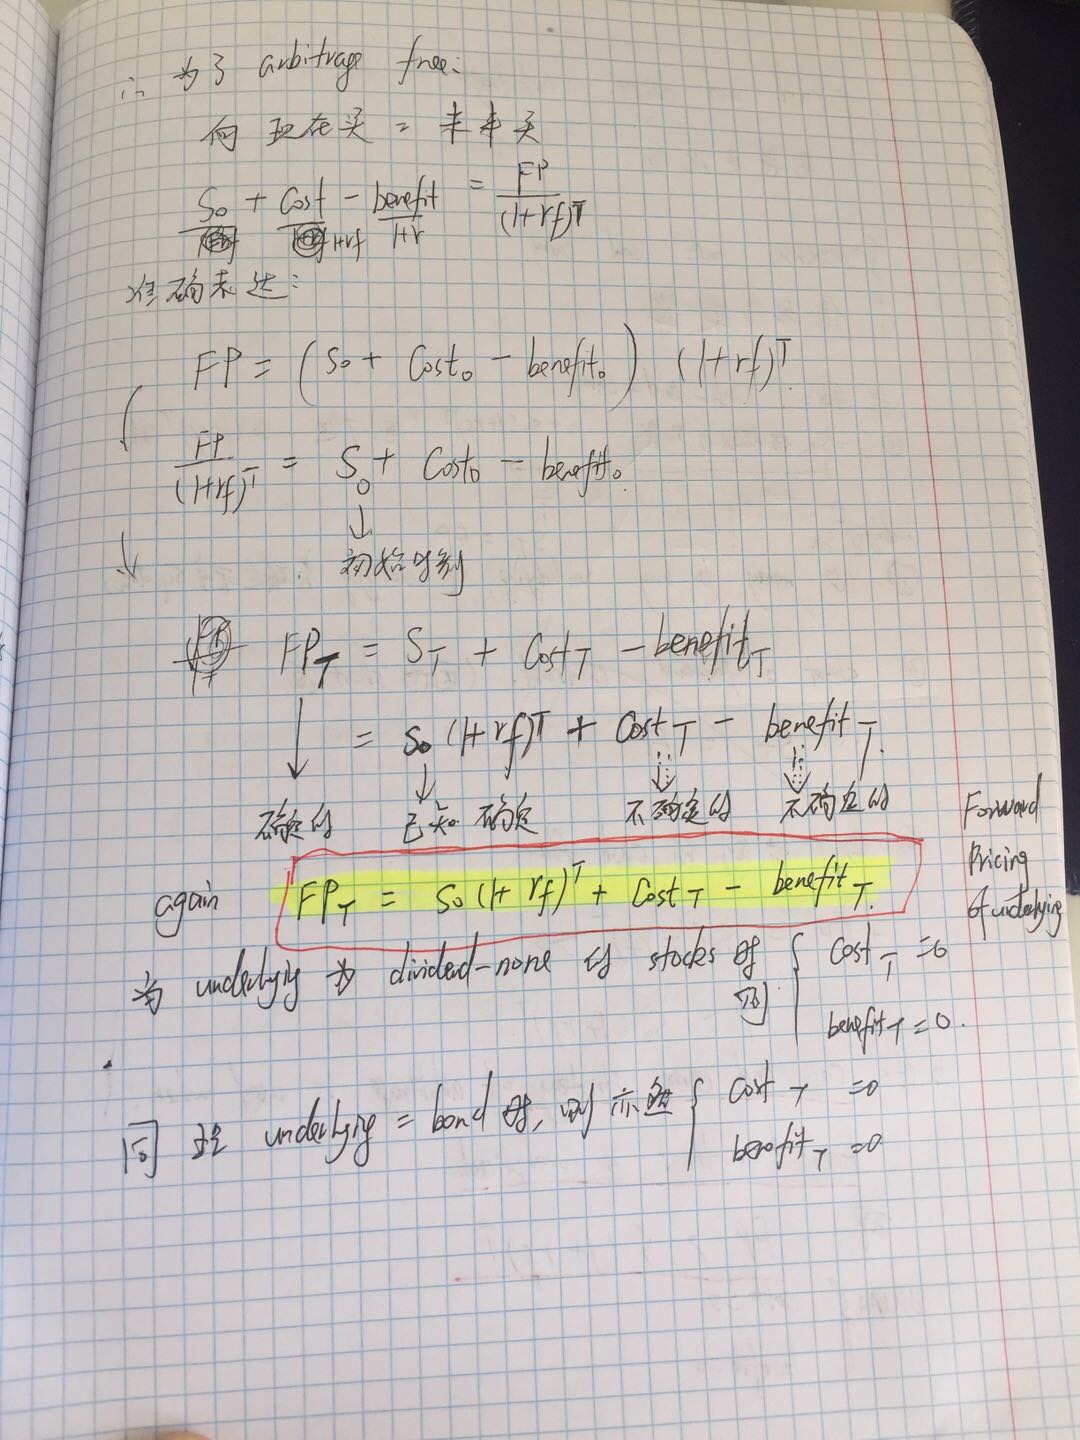 ∴ 为了 arbitrage free:
向 现在买 = 未来买
S₀ + Cost/1+rf − benefit/1+r = FP/(1+rf)^T
准确表达:
FP = (S₀ + Cost₀ − benefit₀) (1+rf)^T
FP/(1+rf)^T = S₀ + Cost₀ − benefit₀
↓
初始时刻
FP_T = S_T + Cost_T − benefit_T
= S₀ (1+rf)^T + Cost_T − benefit_T
确定的 已知 确定 不确定的 不确定的
again FP_T = S₀ (1+rf)^T + Cost_T − benefit_T.
Forward
Pricing
of underlying
当 underlying 为 dividend-none 的 stocks 时 { Cost_T = 0
benefit_T = 0.
同理 underlying = bond 时, 则 亦 { Cost_T = 0
benefit_T = 0